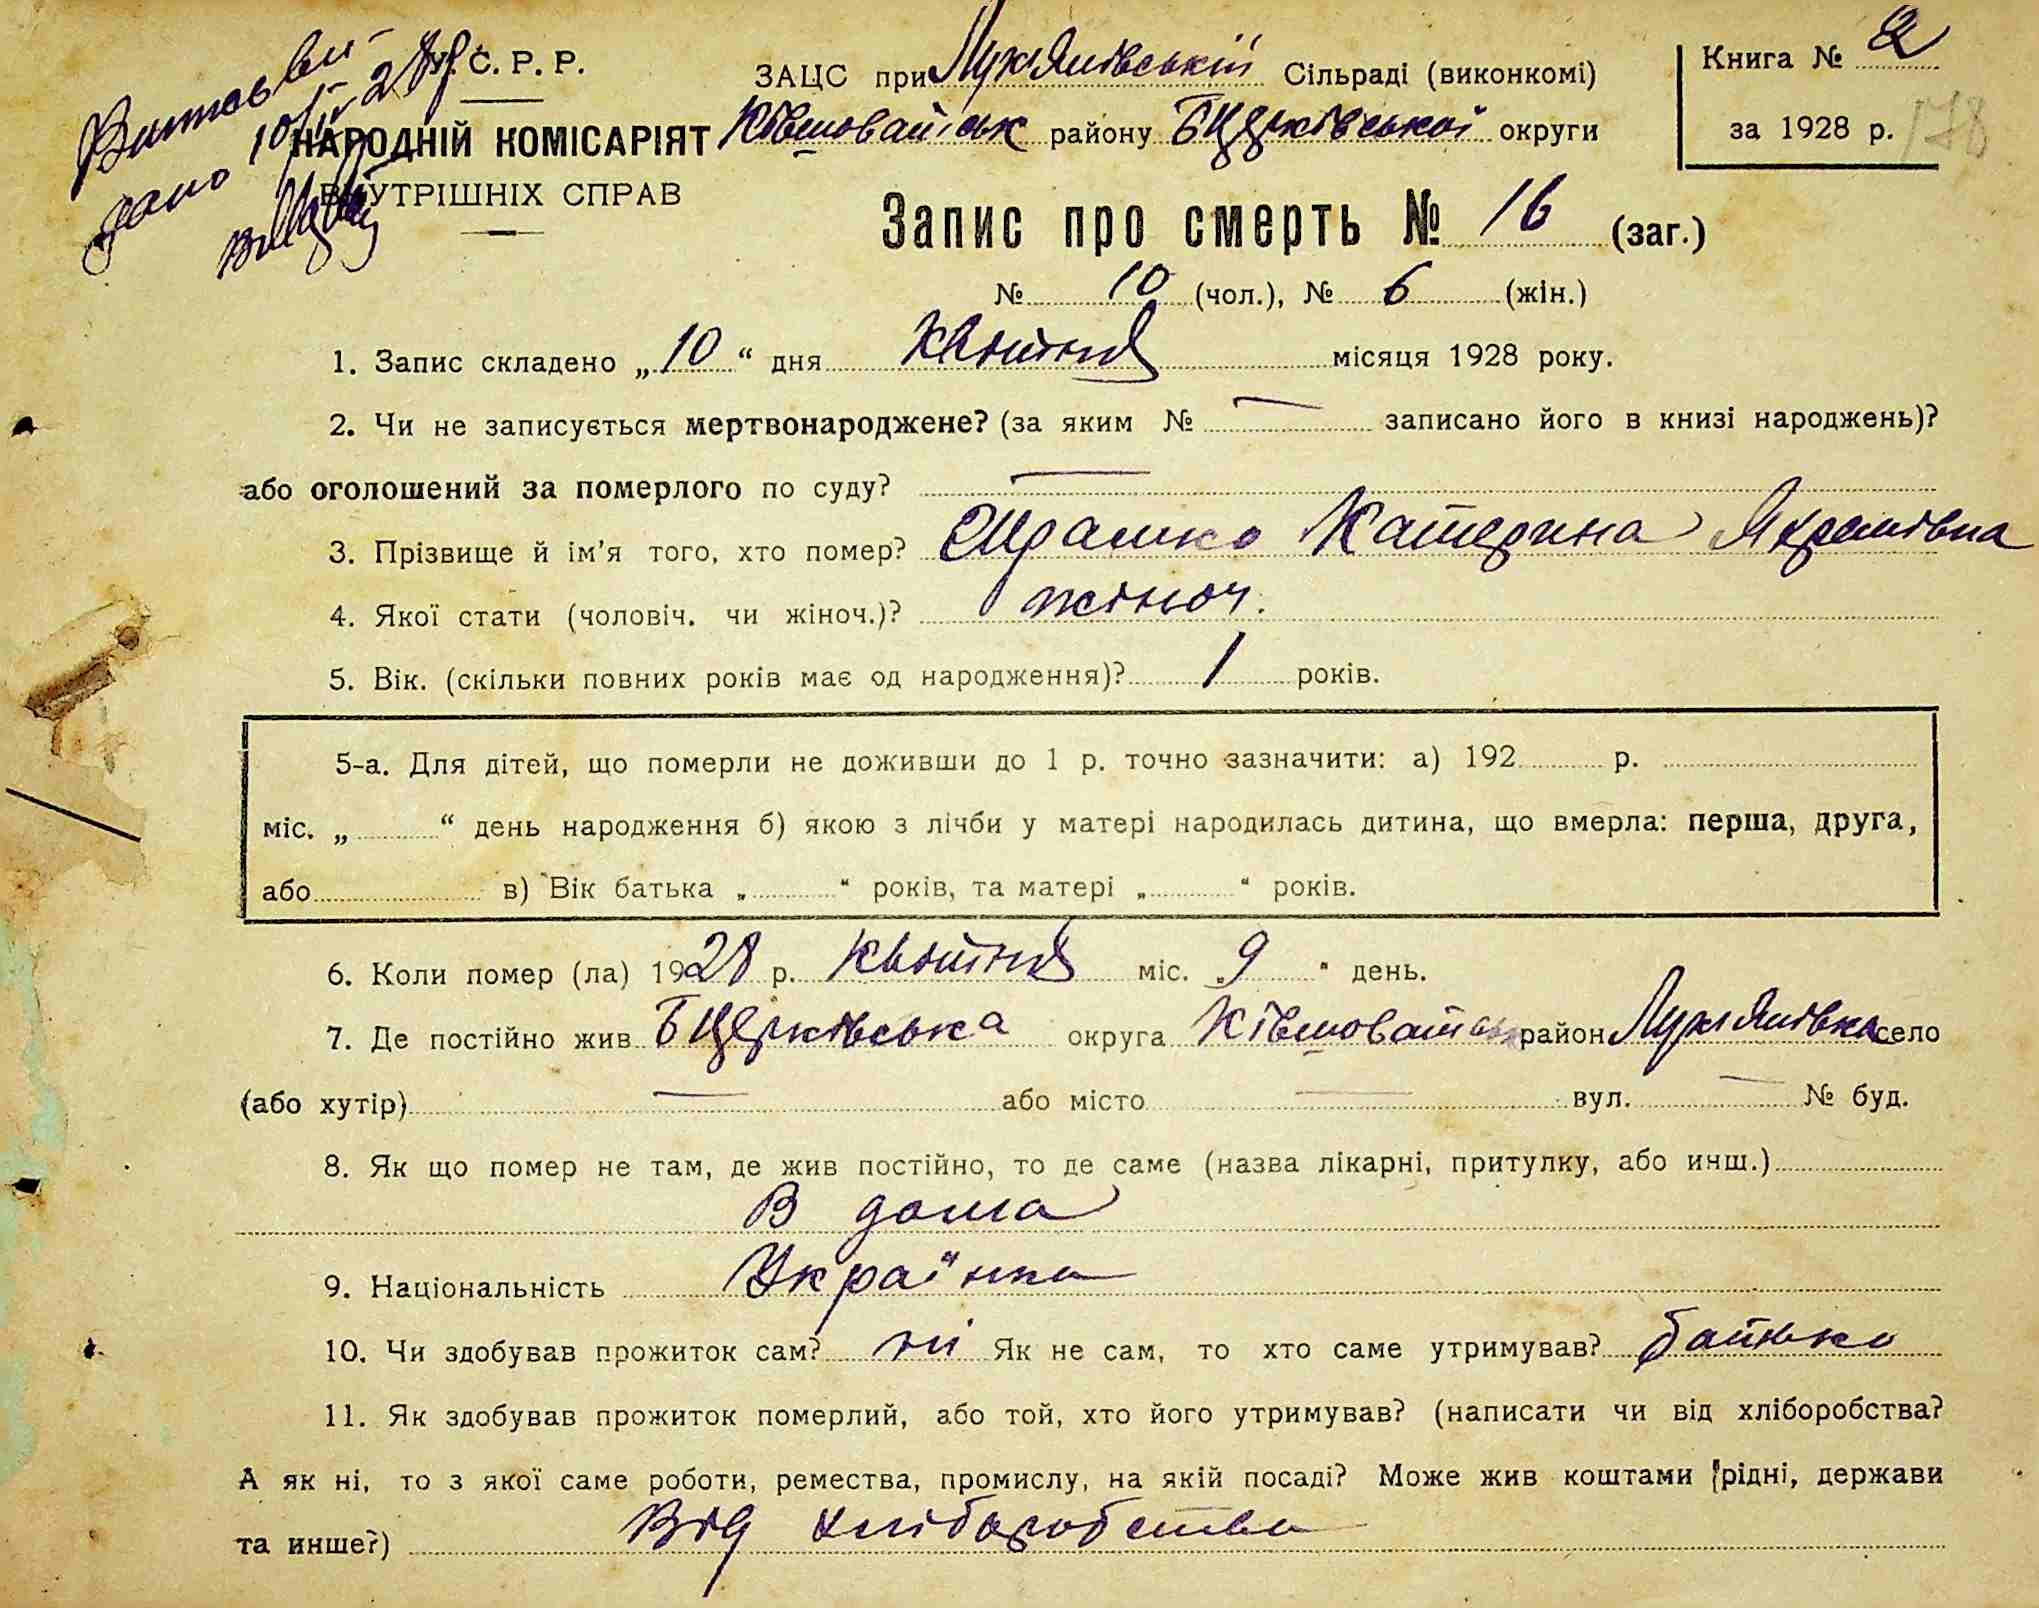 У. С. Р. Р.
НАРОДНІЙ КОМІСАРІЯТ
ВНУТРІШНІХ СПРАВ
ЗАЦС при Лукʼянівській Сільраді (виконкомі)
Ківшоватськ району БЦерківської округи
Книга № 2
за 1928 р. 178
Запис про смерть № 16 (заг.)
№ 10 (чол.), № 6 (жін.)
1. Запис складено „10“ дня Квітня місяця 1928 року.
2. Чи не записується мертвонароджене? (за яким № — записано його в книзі народжень)?
або оголошений за померлого по суду? —
3. Прізвище й ім'я того, хто помер? Катерина Яхремівна
4. Якої стати (чоловіч. чи жіноч.)? жіноч.
5. Вік. (скільки повних років має од народження)? 1 років.
5-а. Для дітей, що померли не доживши до 1 р. точно зазначити: а) 192 р.
міс. „ “ день народження б) якою з лічби у матері народилась дитина, що вмерла: перша, друга,
або в) Вік батька „ “ років, та матері „ “ років.
6. Коли помер (ла) 1928 р. Квітня міс. „9“ день.
7. Де постійно жив БЦерківська округа Ківшоватськ район Лукʼянівка село
(або хутір) — або місто — вул. — № буд.
8. Як що помер не там, де жив постійно, то де саме (назва лікарні, притулку, або инш.)
В дома
9. Національність Українка
10. Чи здобував прожиток сам? ні Як не сам, то хто саме утримував? батько
11. Як здобував прожиток померлий, або той, хто його утримував? (написати чи від хліборобства?
А як ні, то з якої саме роботи, ремества, промислу, на якій посаді? Може жив коштами рідні, держави
та инше?) Від хліборобства